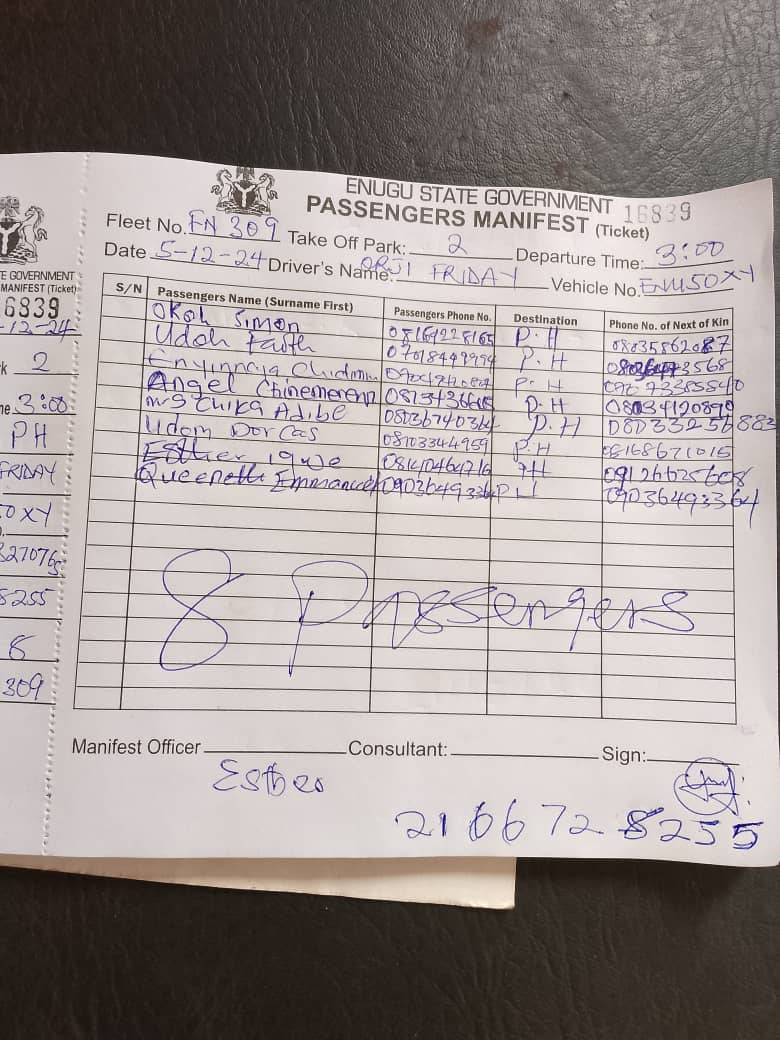 ENUGU STATE GOVERNMENT
PASSENGERS MANIFEST (Ticket) 16839
Fleet No. EN 309 Take Off Park: 2 Departure Time: 3:00
Date 5-12-24 Driver's Name: ORJI FRIDAY Vehicle No. ENU150XY
S/N Passengers Name (Surname First) Passengers Phone No. Destination Phone No. of Next of Kin
Okoh Simon 08164228165 P.H 08035862087
Udoh Faith 07018449994 P.H
P.H
Angel Chinemerem P.H 08034120870
Mrs Chika Adibe 08036740364 P.H 08033256883
Udom Dorcas 08103344959 P.H 08168671015
Esther igwe PH 09126625608
Queeneth Emmanuel 09036493364 PH 09036493364
8 Passengers
Manifest Officer Consultant: Sign:
Esther
21 66 72 8255
E GOVERNMENT
MANIFEST (Ticket)
6839
-12-24
k 2
me 3:00
PH
FRIDAY
50 XY
327076
8255
309